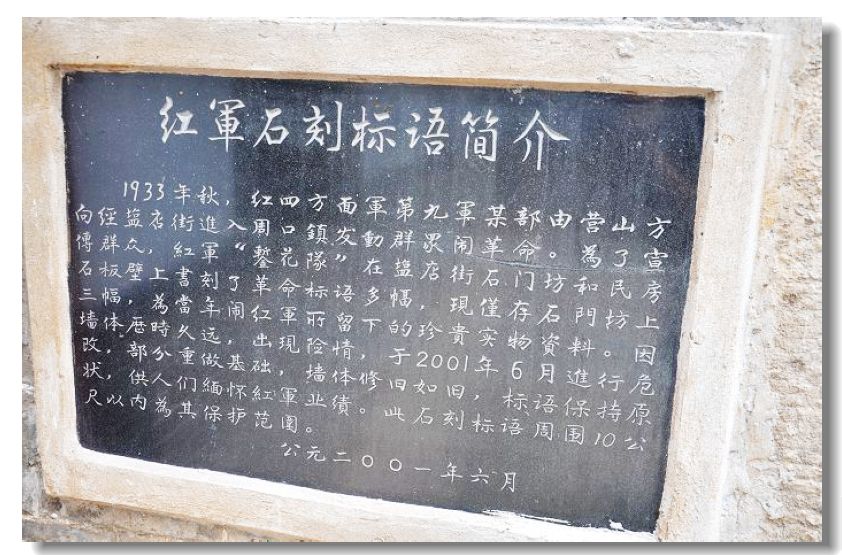 红軍石刻标语简介
1933年秋,红四方面軍第九軍某部由营山方
向經盐店街進入周口鎮发動群眾闹革命。為了宣
傳群众,紅軍“鏨花隊”在盐店街石门坊和民房
石板壁上書刻了革命标语多幅,現僅存石門坊上
三幅,為當年闹红軍所留下的珍貴实物資料。因
墙体歷時久远,出現险情,于2001年6月進行危
改,部分重做基础,墙体修旧如旧,标语保持原
状,供人們緬怀紅軍业绩。此石刻标语周围10公
尺以内為其保护范圍。
公元二00一年六月